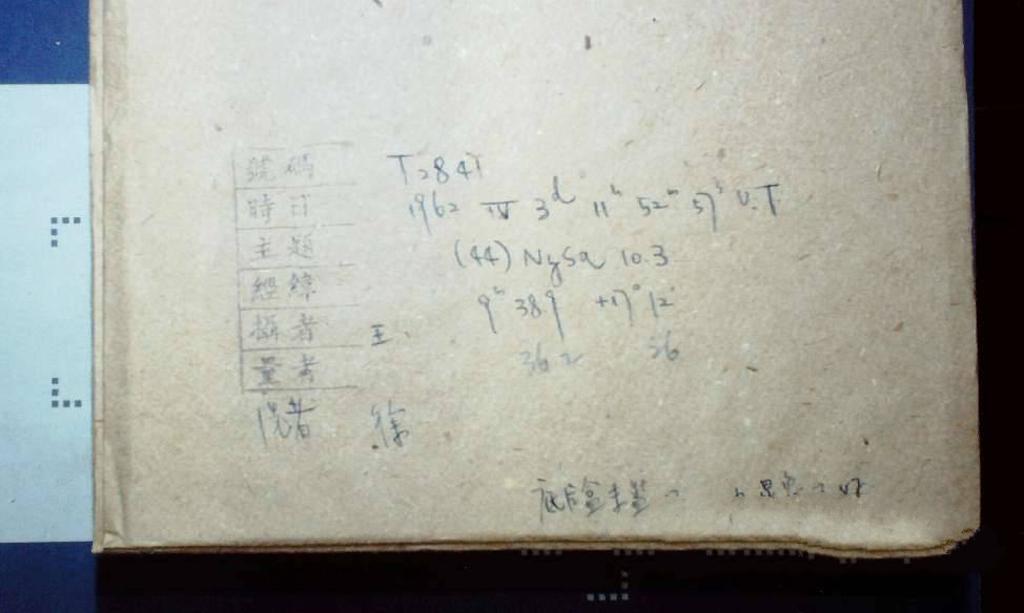 號碼 T2841
時日 1962 IV 3d 11h 52m 57s U.T
主題 (44) Nysa 10.3
經緯 9h 38.9 +17° 12'
攝者 王
量者 362 26
徐
底片盒未蓋